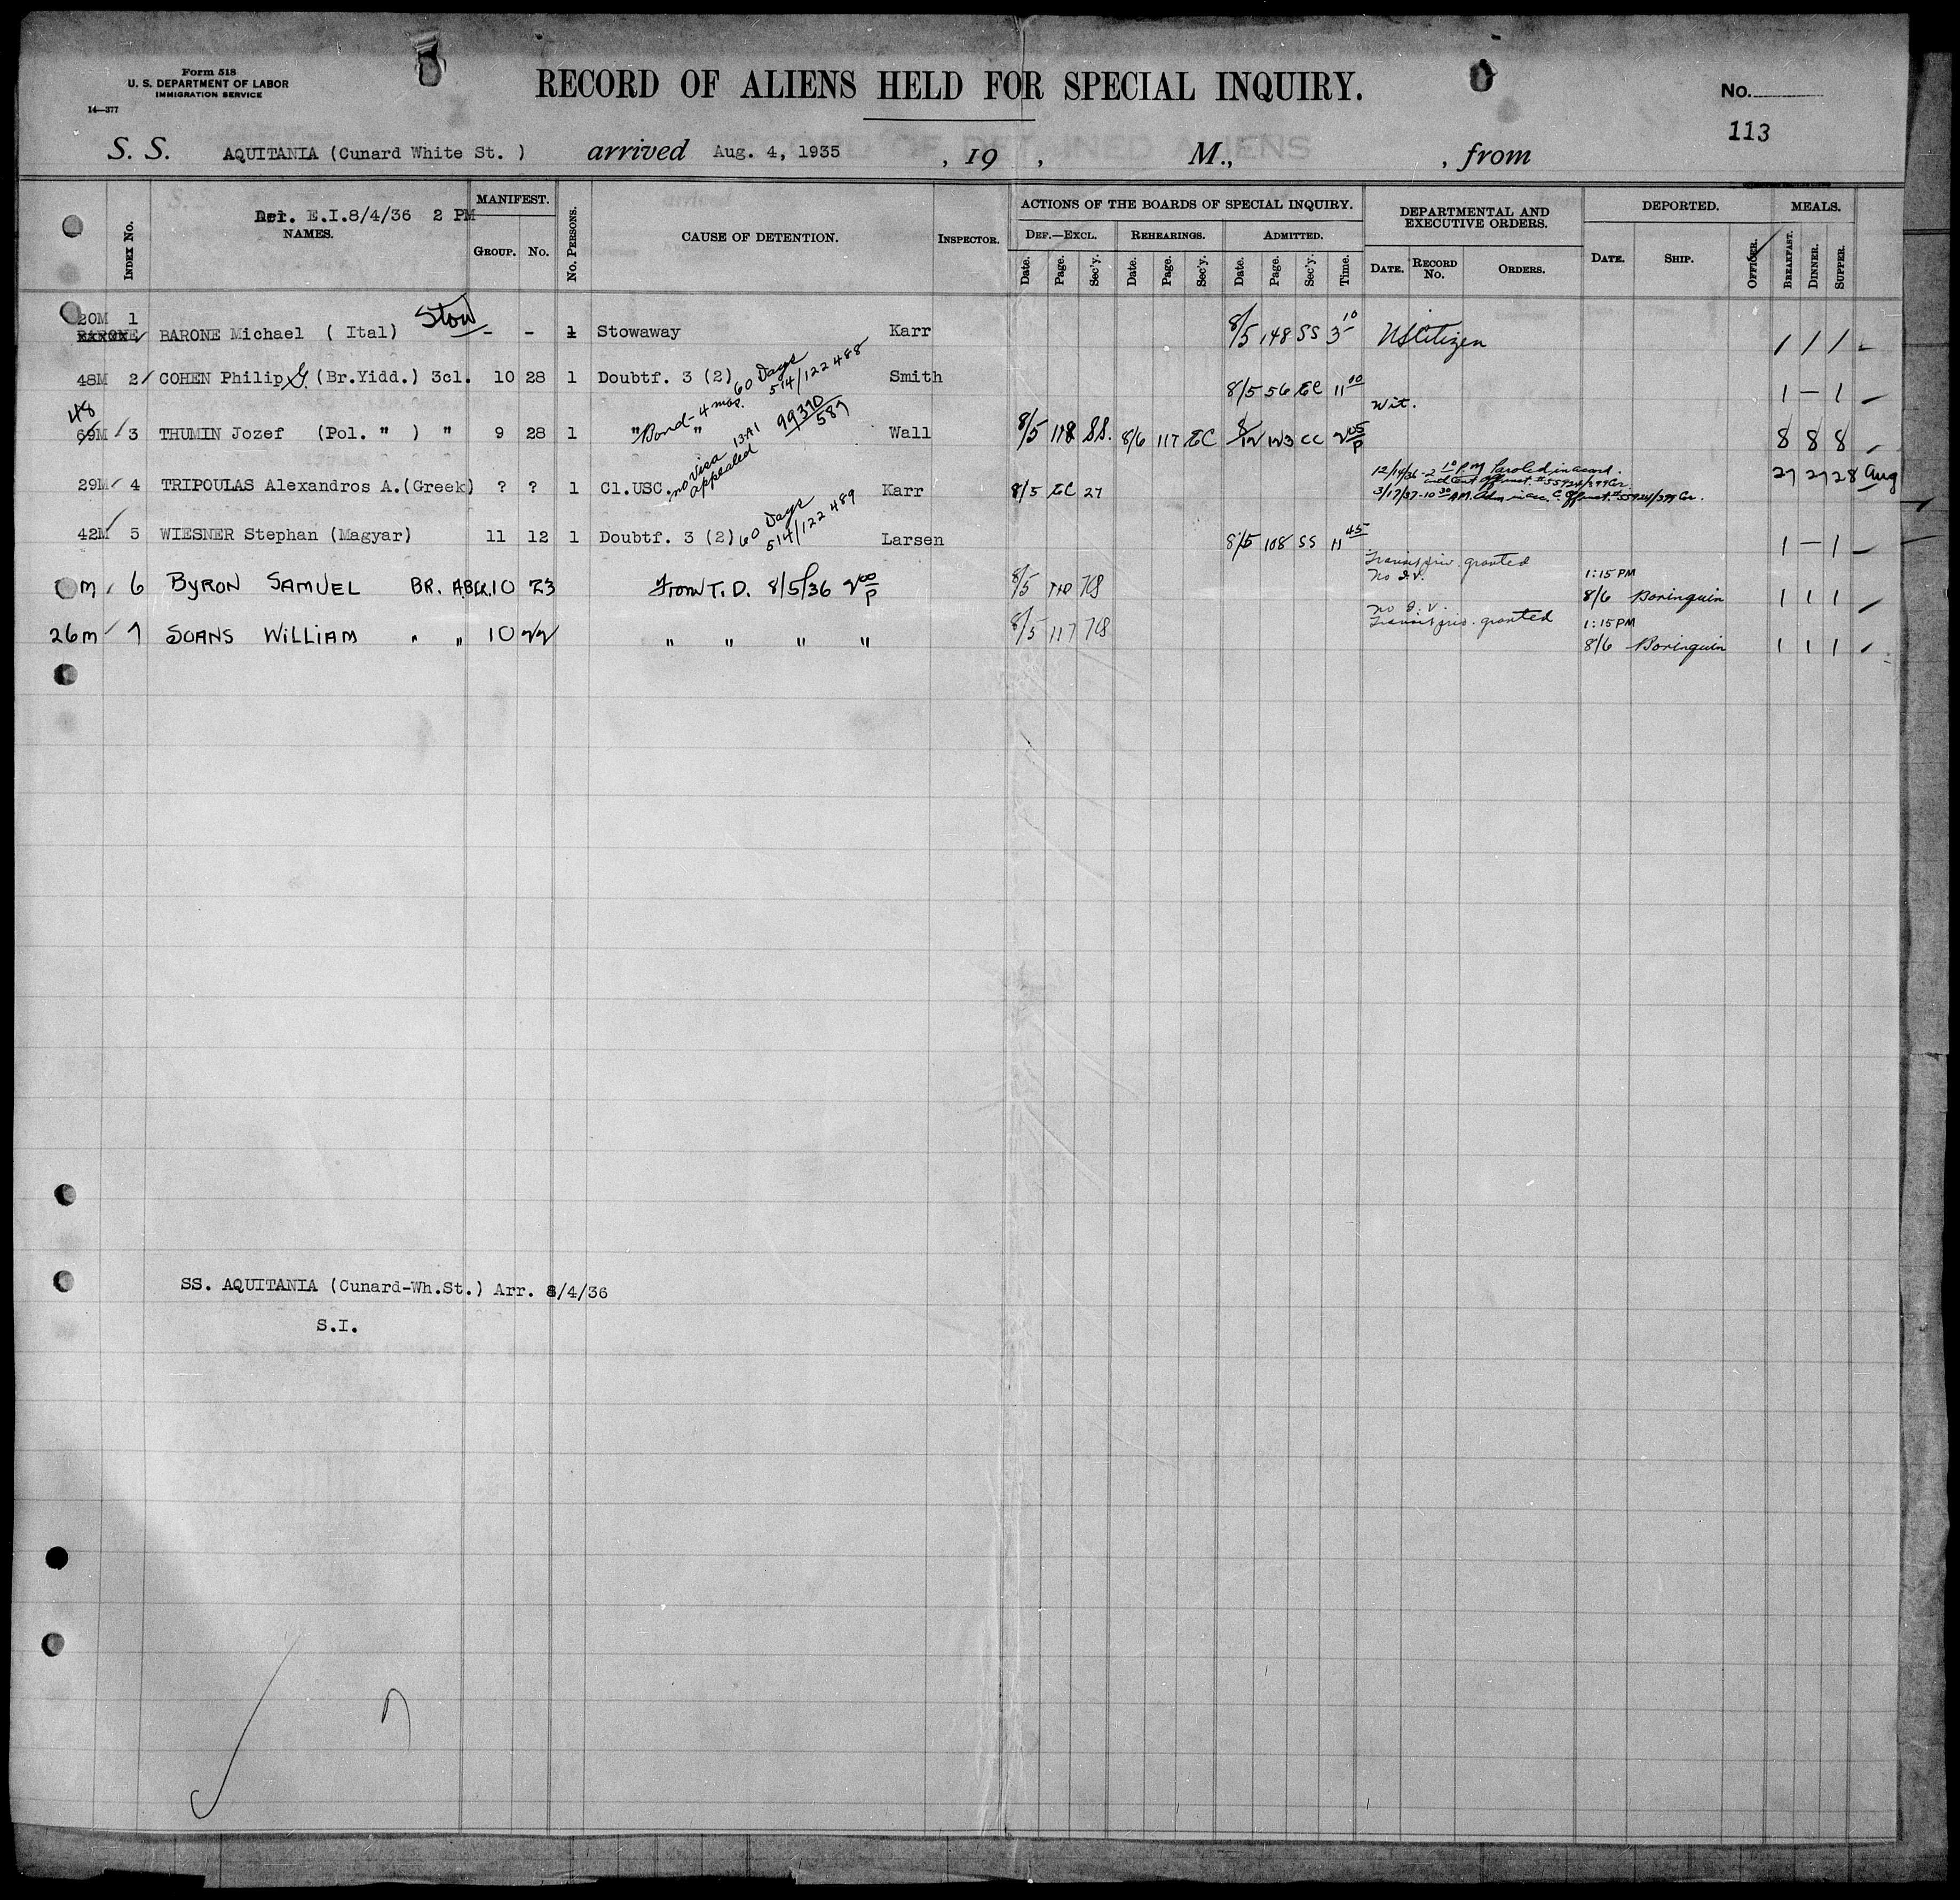 Form 518
U. S. DEPARTMENT OF LABOR
IMMIGRATION SERVICE
14—377
RECORD OF ALIENS HELD FOR SPECIAL INQUIRY.
No.
113
S. S. AQUITANIA (Cunard White St. ) arrived Aug. 4, 1935 , 19 , M., , from
Index No.
E.I.8/4/36 2 PM
NAMES.
MANIFEST.
GROUP. NO.
No. Persons.
CAUSE OF DETENTION.
INSPECTOR.
ACTIONS OF THE BOARDS OF SPECIAL INQUIRY.
DEF.—EXCL. REHEARINGS. ADMITTED.
Date. Page. Sec'y. Date. Page. Sec'y. Date. Page. Sec'y. Time.
DEPARTMENTAL AND EXECUTIVE ORDERS.
DATE. RECORD No. ORDERS.
DEPORTED.
DATE. SHIP. OFFICER.
MEALS.
BREAKFAST. DINNER. SUPPER.
Stow
20M 1 BARONE Michael ( Ital) - - 1 Stowaway Karr 8/5 148 SS 3 10 US Citizen 1 1 1
BARONE
60 Days
514/122 488
48M 2 COHEN Philip G. (Br.Yidd.) 3cl. 10 28 1 Doubtf. 3 (2) Smith 8/5 56 EC 11 00 1 — 1
Wit.
48
Bond - 4 mos. 99370/587
69M 3 THUMIN Jozef (Pol. " ) " 9 28 1 " " Wall 8/5 118 SS. 8/6 117 EC 8/12 123 CC 2 05 P 8 8 8
no visa 13-A1
appealed
29M 4 TRIPOULAS Alexandros A.(Greek) ? ? 1 Cl.USC. Karr 8/5 EC 27 27 27 28 Aug
12/14/36 - 2 10 P.M. Paroled in accord.
3/17/37-10 30 AM. Adm in acc.
60 Days
514/122 489
42M 5 WIESNER Stephan (Magyar) 11 12 1 Doubtf. 3 (2) Larsen 8/5 108 SS 11 45 1 — 1
Transit priv. granted
m 6 BYRON SAMUEL BR. ABLK. 10 23 From T. D. 8/5/36 2 00 P 8/5 1:15 PM
8/6 Borinquin 1 1 1
Transit priv. granted
26m 7 SOANS WILLIAM " " 10 22 " " " " 8/5 117 1:15 PM
8/6 Borinquin 1 1 1
SS. AQUITANIA (Cunard-Wh.St.) Arr. 8/4/36
S.I.
7